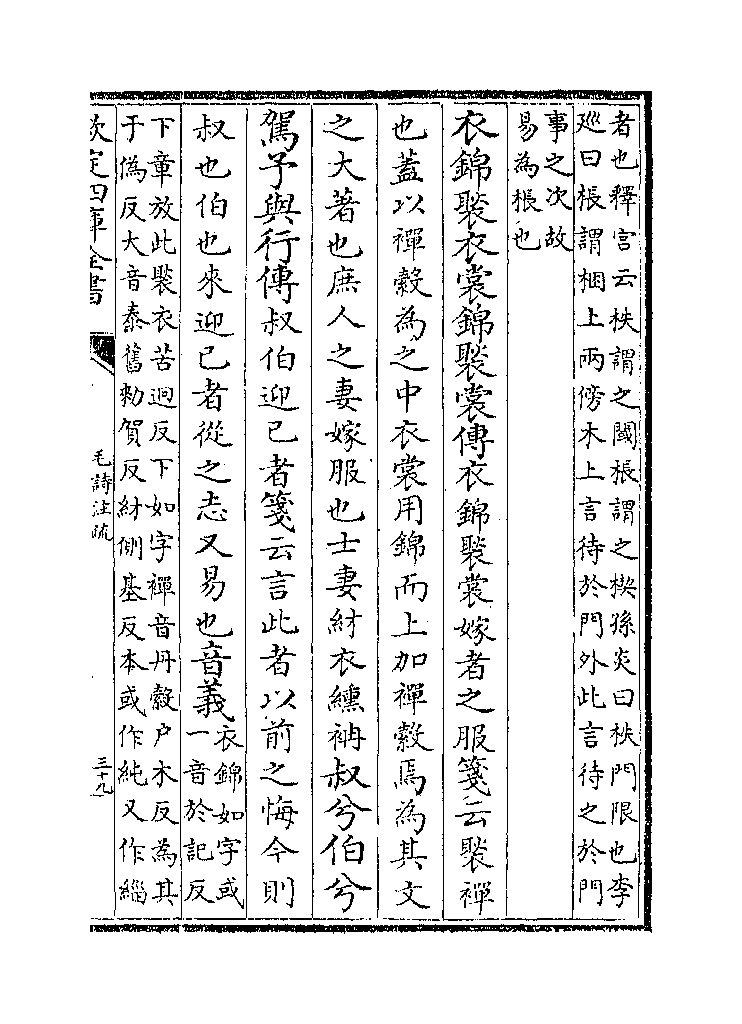 者也釋宫云柣謂之閾棖謂之楔孫炎曰柣門限也李
廵曰棖謂梱上兩傍木上言待於門外此言待之於門
事之次故
易為棖也
衣錦褧衣裳錦褧裳傳衣錦褧裳嫁者之服箋云褧禪
也葢以禪縠為之中衣裳用錦而上加禪縠焉為其文
之大著也庶人之妻嫁服也士妻紂衣纁袡叔兮伯兮
駕予與行傳叔伯迎已者箋云言此者以前之悔今則
叔也伯也來迎已者從之志又易也音義
衣錦如字或
一音於記反
下章放此褧衣苦迥反下如字禪音丹縠户木反為其
于偽反大音泰舊勅賀反紂側基反本或作純又作緇
欽定四庫全書
毛詩注疏
三十九